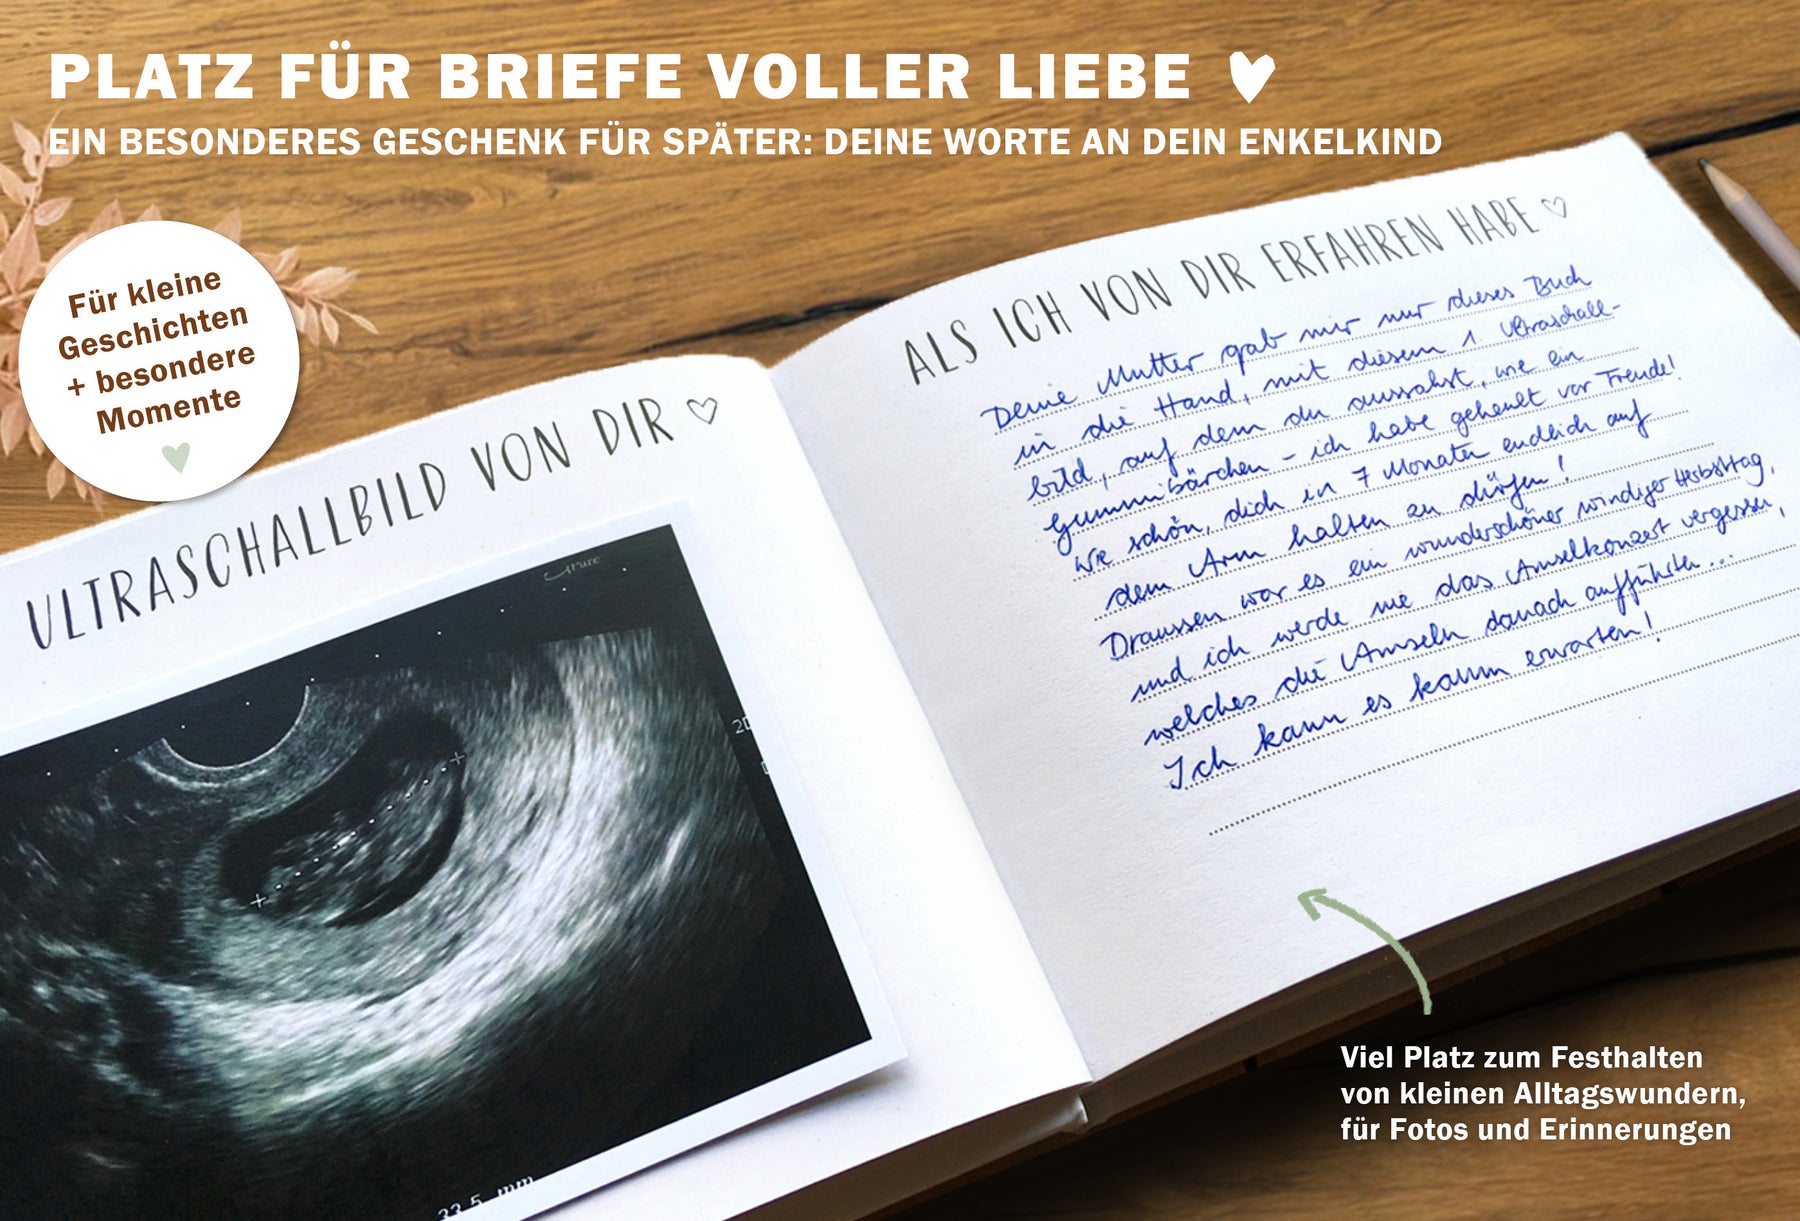 PLATZ FÜR BRIEFE VOLLER LIEBE
EIN BESONDERES GESCHENK FÜR SPÄTER: DEINE WORTE AN DEIN ENKELKIND
Für kleine
Geschichten
+ besondere
Momente
ULTRASCHALLBILD VON DIR
2D
33.5 mm
ALS ICH VON DIR ERFAHREN HABE
Deine Mutter gab mir nur dieses Buch
in die Hand, mit diesem 1. Ultraschall-
bild, auf dem du aussahst, wie ein
Gummibärchen - ich habe geheult vor Freude!
Wie schön, dich in 7 Monaten endlich auf
dem Arm halten zu dürfen!
Draussen war es ein wunderschöner windiger Herbsttag,
und ich werde nie das Amselkonzert vergessen,
welches die Amseln danach aufführten...
Ich kann es kaum erwarten!
Viel Platz zum Festhalten
von kleinen Alltagswundern,
für Fotos und Erinnerungen